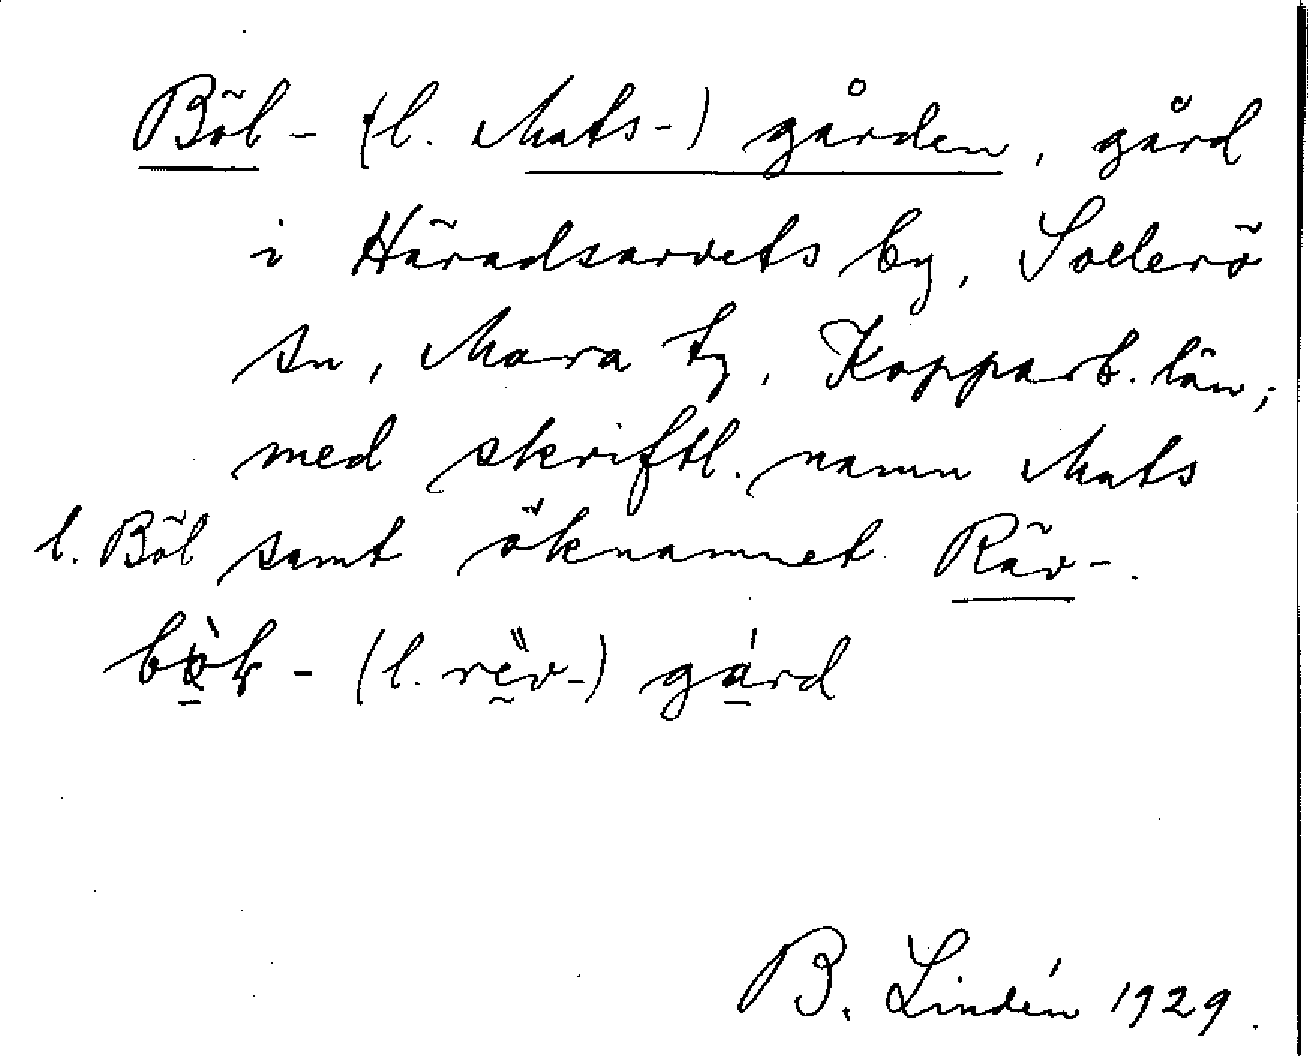 Böl- (l. Mats-) gården, gård
i Häradsarvets by, Sollerö
sn, Mora tg, Kopparb. län;
med skriftl. namn Mats
l. Böl samt öknamnet Räv-.
- (l. räv-) gård
B. Lindén 1929.